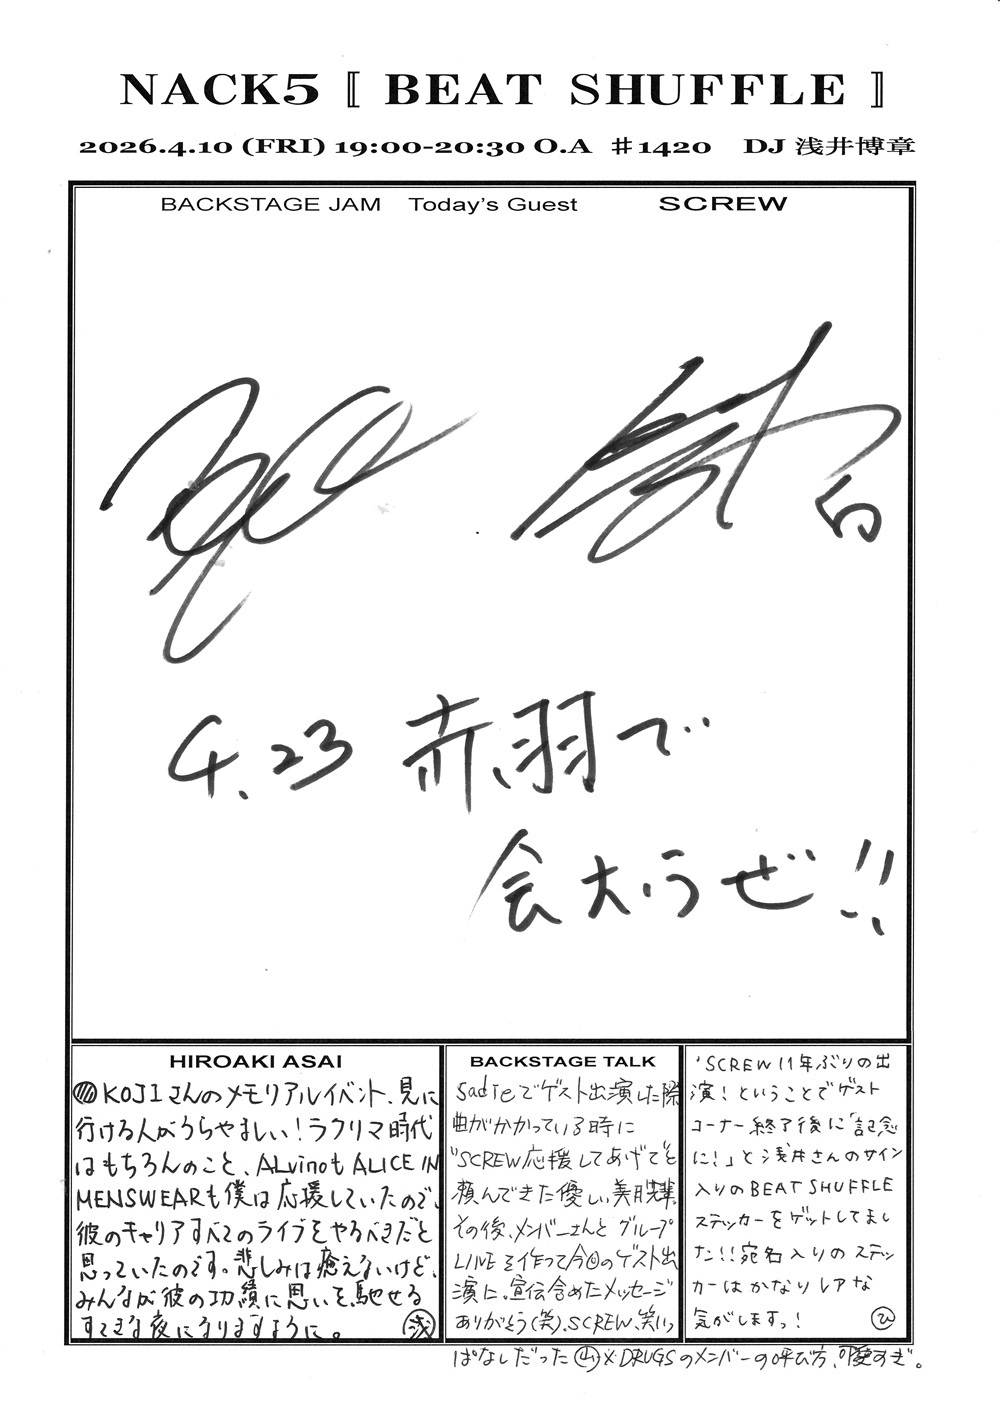 NACK5 〚 BEAT SHUFFLE 〛
2026.4.10 (FRI) 19:00-20:30 O.A ♯1420 DJ 浅井博章
BACKSTAGE JAM Today's Guest SCREW
4.23 赤羽で
会おうぜ!!
HIROAKI ASAI
KOJIさんのメモリアルイベント、見に
行ける人がうらやましい!ラクリマ時代
はもちろんのこと、ALvinoもALICE IN
MENSWEARも僕は応援していたので、
彼のキャリアすべてのライブをやるべきだと
思っていたのです。悲しみは癒えないけど、
みんなが彼の功績に思いを馳せる
すてきな夜になりますように。 浅
BACKSTAGE TALK
Sadieでゲスト出演した際
曲がかかっている時に
"SCREW応援してあげて"と
頼んできた優しい美月先輩。
その後、メンバーさんとグループ
LINEを作って今回のゲスト出
演に。宣伝含めたメッセージ
ありがとう(笑)。SCREW、笑いっ
ぱなしだった 山 ×DRUGSのメンバーの呼び方、可愛すぎ。
'SCREW 11年ぶりの出
演!ということでゲスト
コーナー終了後に「記念
に!」と浅井さんのサイン
入りのBEAT SHUFFLE
ステッカーをゲットしてまし
た!!宛名入りのステッ
カーはかなりレアな
気がしますっ! ひ